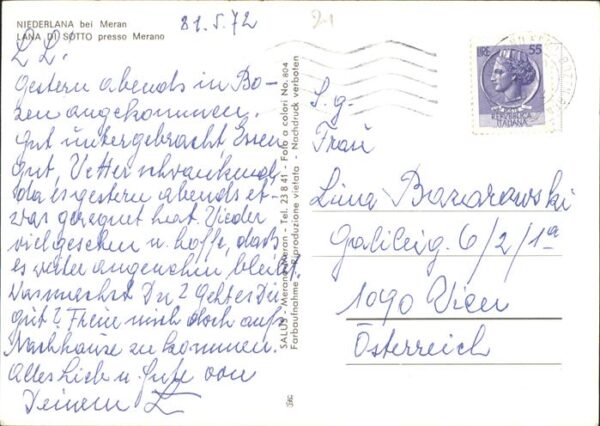 NIEDERLANA bei Meran
LANA DI SOTTO presso Merano
21.5.72
L L.
Gestern abends in Bo-
zen angekommen.
Gut untergebracht, Essen
gut, Wetter schwankend,
da es gestern abends et-
was geregnet hat. Wieder
viel gesehen u. hoffe, daß
es weiter angenehm bleibt.
Was machst Du? Geht es Dir
gut? Freue mich doch aufs
Nachhause zu kommen.
Alles Lieb u. Gute von
Deinem L
SALUS - Merano/Meran - Tel. 23841 - Foto a colori No. 804
Farbaufnahme - Riproduzione vietata - Nachdruck verboten
LIRE 55
REPUBBLICA
ITALIANA
S. g.
Frau
Lina Bazarowski
Galileig. 6/2/1a
1090 Wien
Österreich